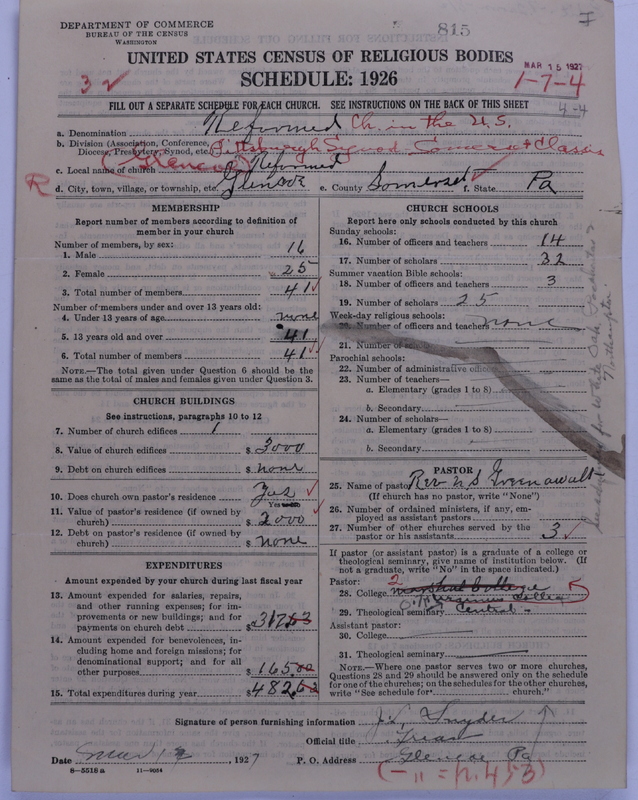 DEPARTMENT OF COMMERCE
BUREAU OF THE CENSUS
WASHINGTON
815
I
UNITED STATES CENSUS OF RELIGIOUS BODIES
MAR 15 1927
SCHEDULE: 1926
3 2
1-7-4
FILL OUT A SEPARATE SCHEDULE FOR EACH CHURCH. SEE INSTRUCTIONS ON THE BACK OF THIS SHEET
4-4
a. Denomination Reformed Ch. in the U.S.
b. Division (Association, Conference, Diocese, Presbytery, Synod, etc.) Pittsburgh Synod Somerset Classis
(Glencoe)
c. Local name of church Reformed
R
d. City, town, village, or township, etc. Glencoe e. County Somerset f. State Pa
MEMBERSHIP
Report number of members according to definition of
member in your church
Number of members, by sex:
1. Male 16
2. Female 25
3. Total number of members 41
Number of members under and over 13 years old:
4. Under 13 years of age none
5. 13 years old and over 41
6. Total number of members 41
NOTE.—The total given under Question 6 should be
the same as the total of males and females given under Question 3.
CHURCH BUILDINGS
See instructions, paragraphs 10 to 12
7. Number of church edifices 1
8. Value of church edifices $ 3000
9. Debt on church edifices $ none
10. Does church own pastor's residence Yes
Yes
11. Value of pastor's residence (if owned by
church) $ 2000
12. Debt on pastor's residence (if owned by
church) $ none
EXPENDITURES
Amount expended by church during last fiscal year
13. Amount expended for salaries, repairs,
and other running expenses; for im-
provements or new buildings; and for
payments on church debt $ 317
14. Amount expended for benevolences,
including home and foreign missions; for
denominational support; and for all
other purposes $ 165
15. Total expenditures during year $ 482
CHURCH SCHOOLS
Report here only schools conducted by this church
Sunday schools:
16. Number of officers and teachers 14
17. Number of scholars 32
Summer vacation Bible schools:
18. Number of officers and teachers 3
19. Number of scholars 25
Week-day religious schools:
20. Number of officers and teachers none
21. Number of scholars
Parochial schools:
22. Number of administrative officers
23. Number of teachers—
a. Elementary (grades 1 to 8)
b. Secondary
24. Number of scholars—
a. Elementary (grades 1 to 8)
b. Secondary
PASTOR
25. Name of pastor Rev N S Greenawalt
(If church has no pastor, write "None")
26. Number of ordained ministers, if any, em-
ployed as assistant pastors
27. Number of other churches served by the
pastor or his assistants 3
If pastor (or assistant pastor) is a graduate of a college or
theological seminary, give name of institution below. (If
not a graduate, write "No" in the space indicated.)
Pastor: 2
28. College Ursinus College
29. Theological seminary Central
Assistant pastor:
30. College
31. Theological seminary
NOTE.—Where one pastor serves two or more churches,
Questions 28 and 29 should be answered only on the schedule
for one of the churches; on the schedules for the other churches,
write "See schedule for church."
Signature of person furnishing information J. L. Snyder
Official title Treas
Date , 1927 P. O. Address Glencoe Pa
8—5518 a 11—9054
(— " = p. 453)